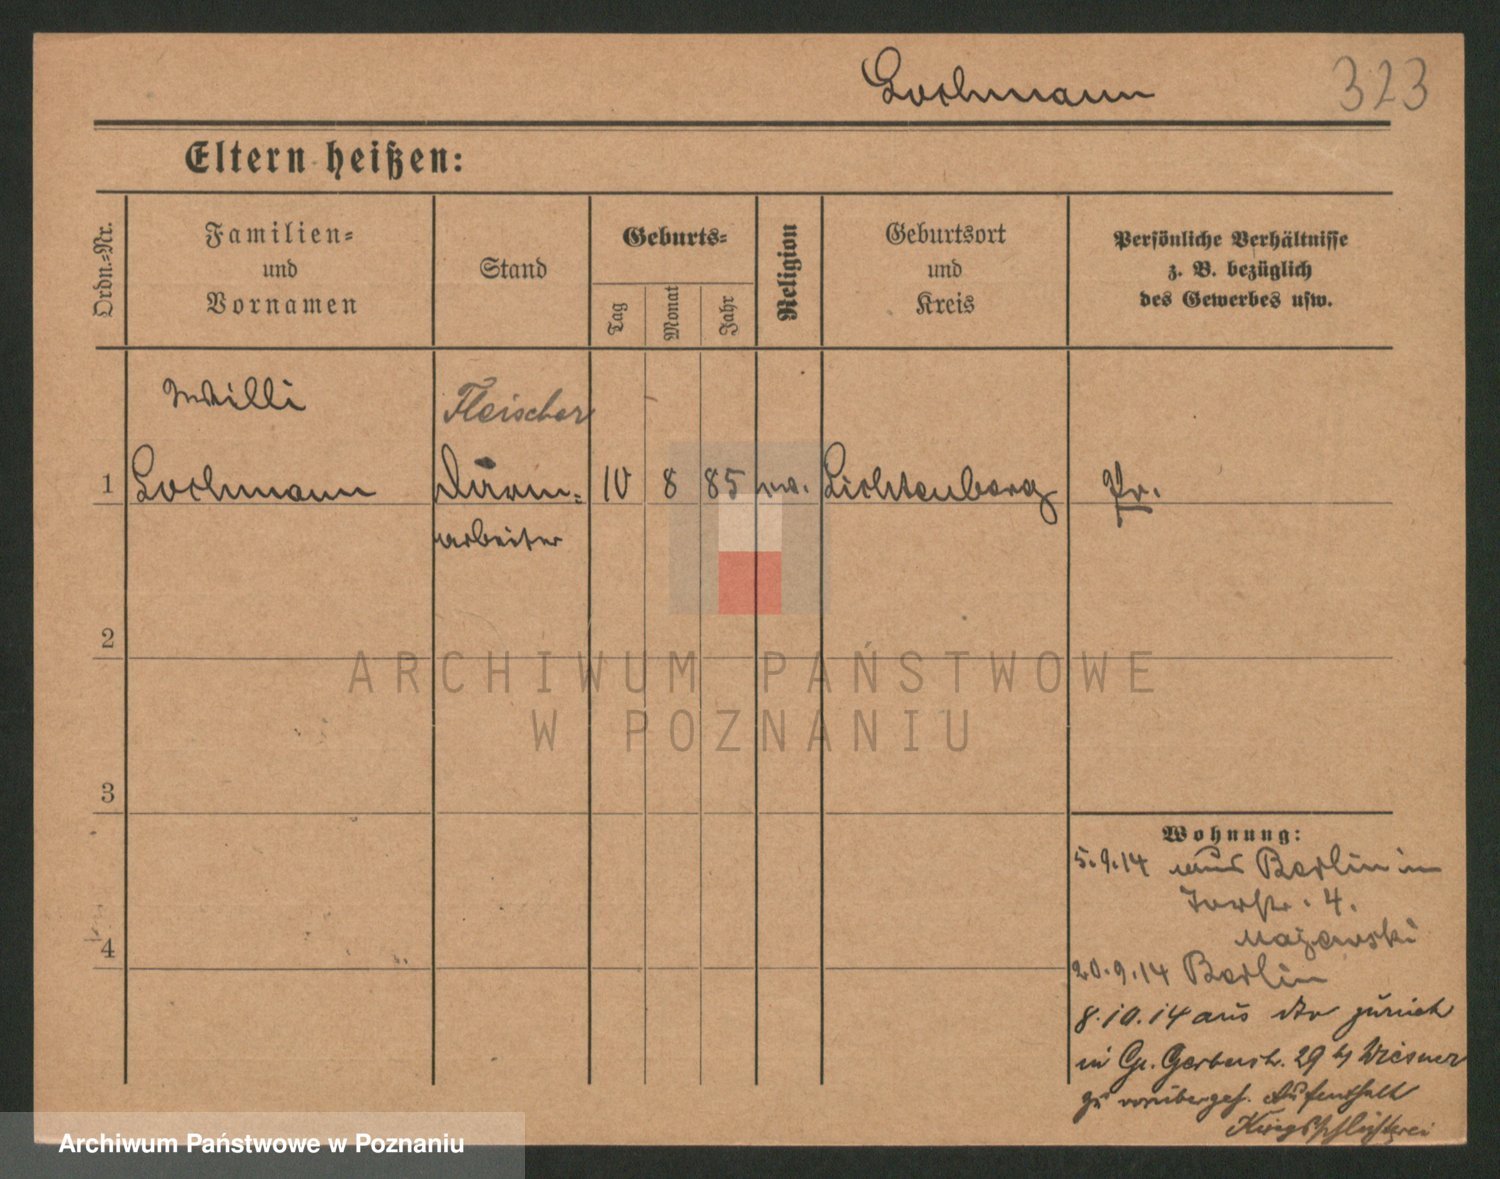 Lochmann
323
Eltern heißen:
Ordn.=Nr.
Familien=
und
Vornamen
Stand
Geburts=
Tag
Monat
Jahr
Religion
Geburtsort
und
Kreis
Persönliche Verhältnisse
z. B. bezüglich
des Gewerbes usw.
Willi
Fleischer
1
Lochmann
10
8
85
Lichtenberg
Pr.
arbeiter
2
ARCHIWUM PAŃSTWOWE
W POZNANIU
3
Wohnung:
5.9.14 aus Berlin in
4.
Majewski
4
20.9.14 Berlin
8.10.14 aus zurück
in Gr. Gerberstr. 29 b/ Wiesner
zu vorübergeh. Aufenthalt
Archiwum Państwowe w Poznaniu